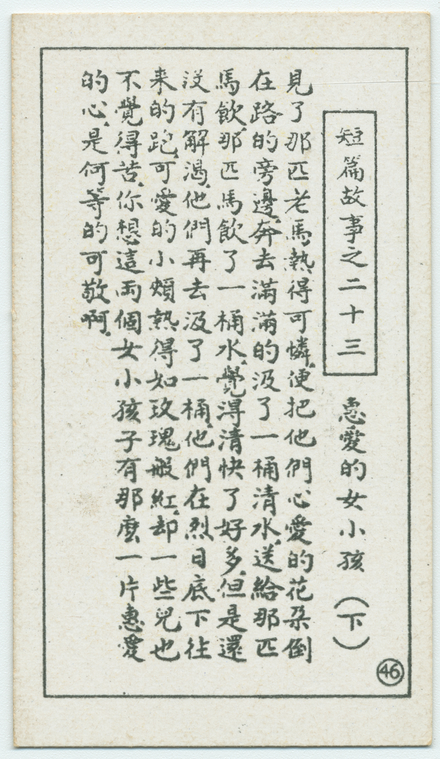 短篇故事之二十三
惠愛的女小孩(下)
見了那匹老馬熱得可憐,便把他們心愛的花朶倒
在路的旁邊,奔去滿滿的汲了一桶清水,送給那匹
馬飲,那匹馬飲了一桶水,覺得清快了好多,但是還
沒有解渴,他們再去汲了一桶,他們在烈日底下往
来的跑,可愛的小頰熱得如玫瑰般紅,却一些兒也
不覺得苦,你想這兩個女小孩子有那麼一片惠愛
的心,是何等的可敬啊.
46